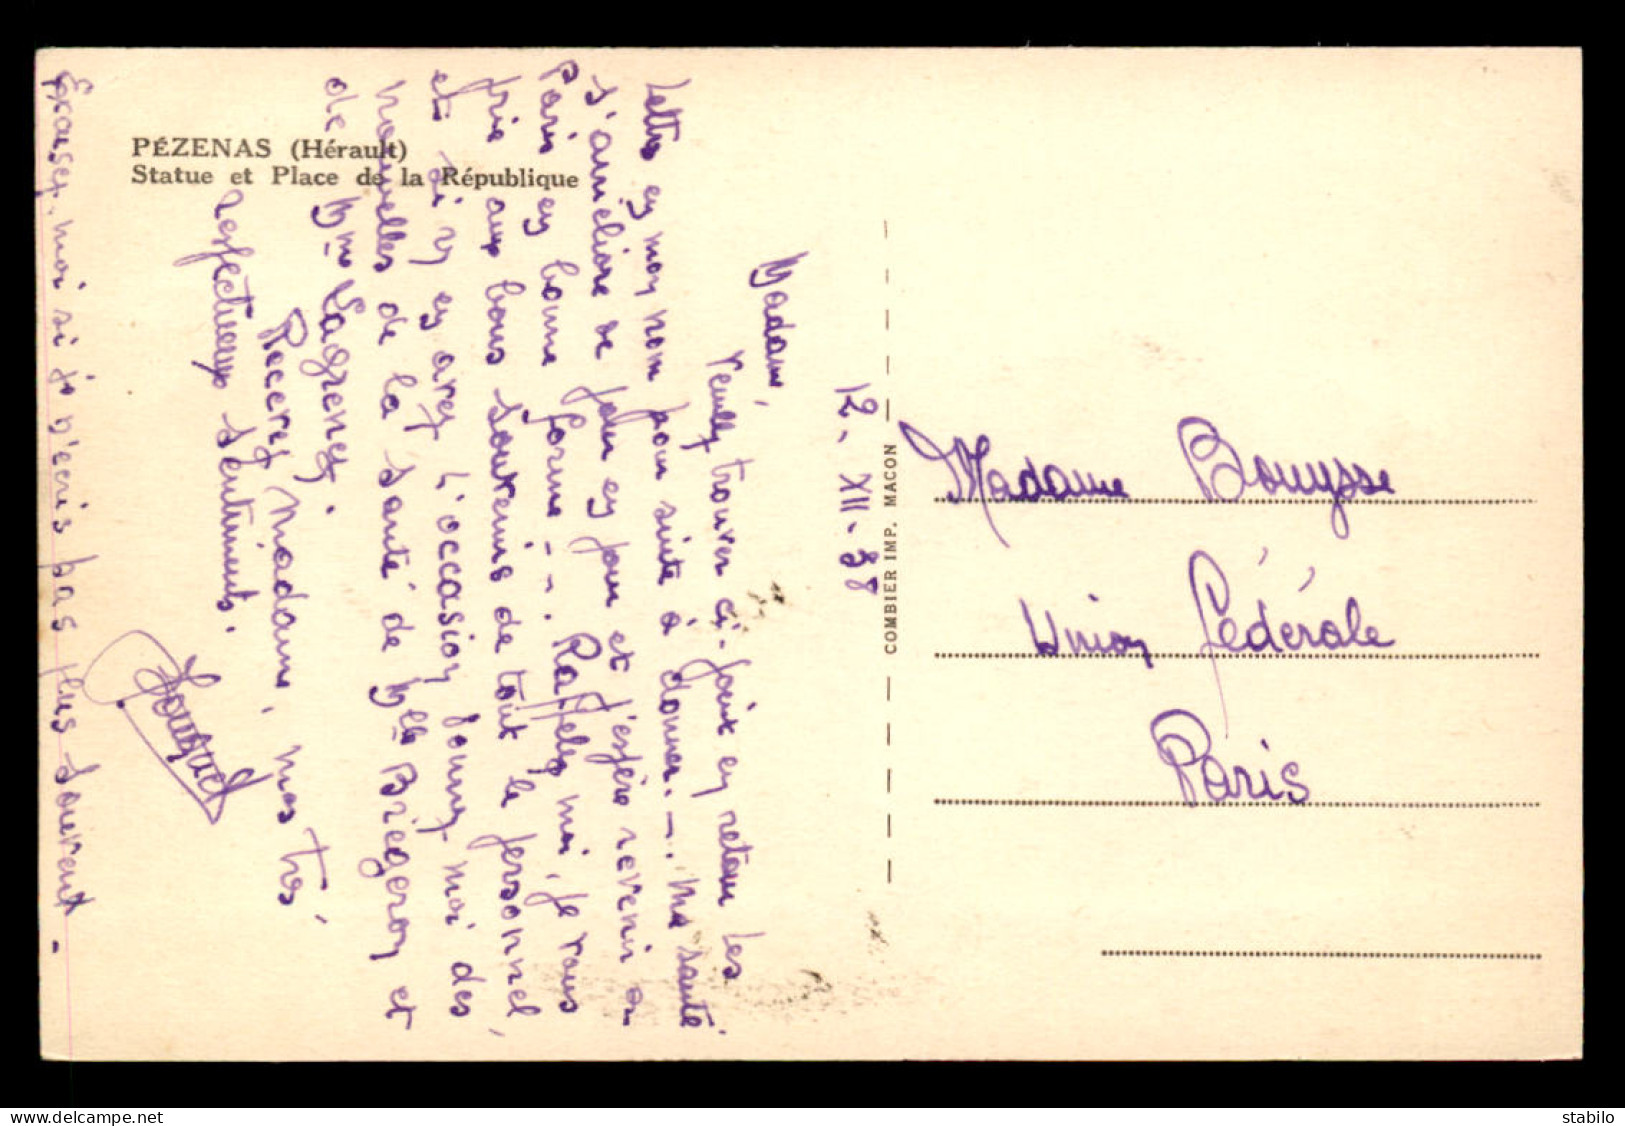 PÉZENAS (Hérault)
Statue et Place de la République
12. XII. 38
Madame,
veuillez trouver ci-joint en retour les
lettres en mon nom pour suite à donner. - Ma santé
s'améliore de jour en jour et j'espère revenir à
Paris en bonne forme - - . Rappelez moi, je vous
prie aux bons souvenirs de tout le personnel,
et si vs en avez l'occasion donnez moi des
nouvelles de la santé de Mlle Brégeron et
de Mme Lagrenez.
Recevez, Madame, mes très
respectueux sentiments.
Excusez-moi si je n'écris pas plus souvent -
COMBIER IMP. MACON
Madame Bouysse
Union Fédérale
Paris
stabilo
www.delcampe.net